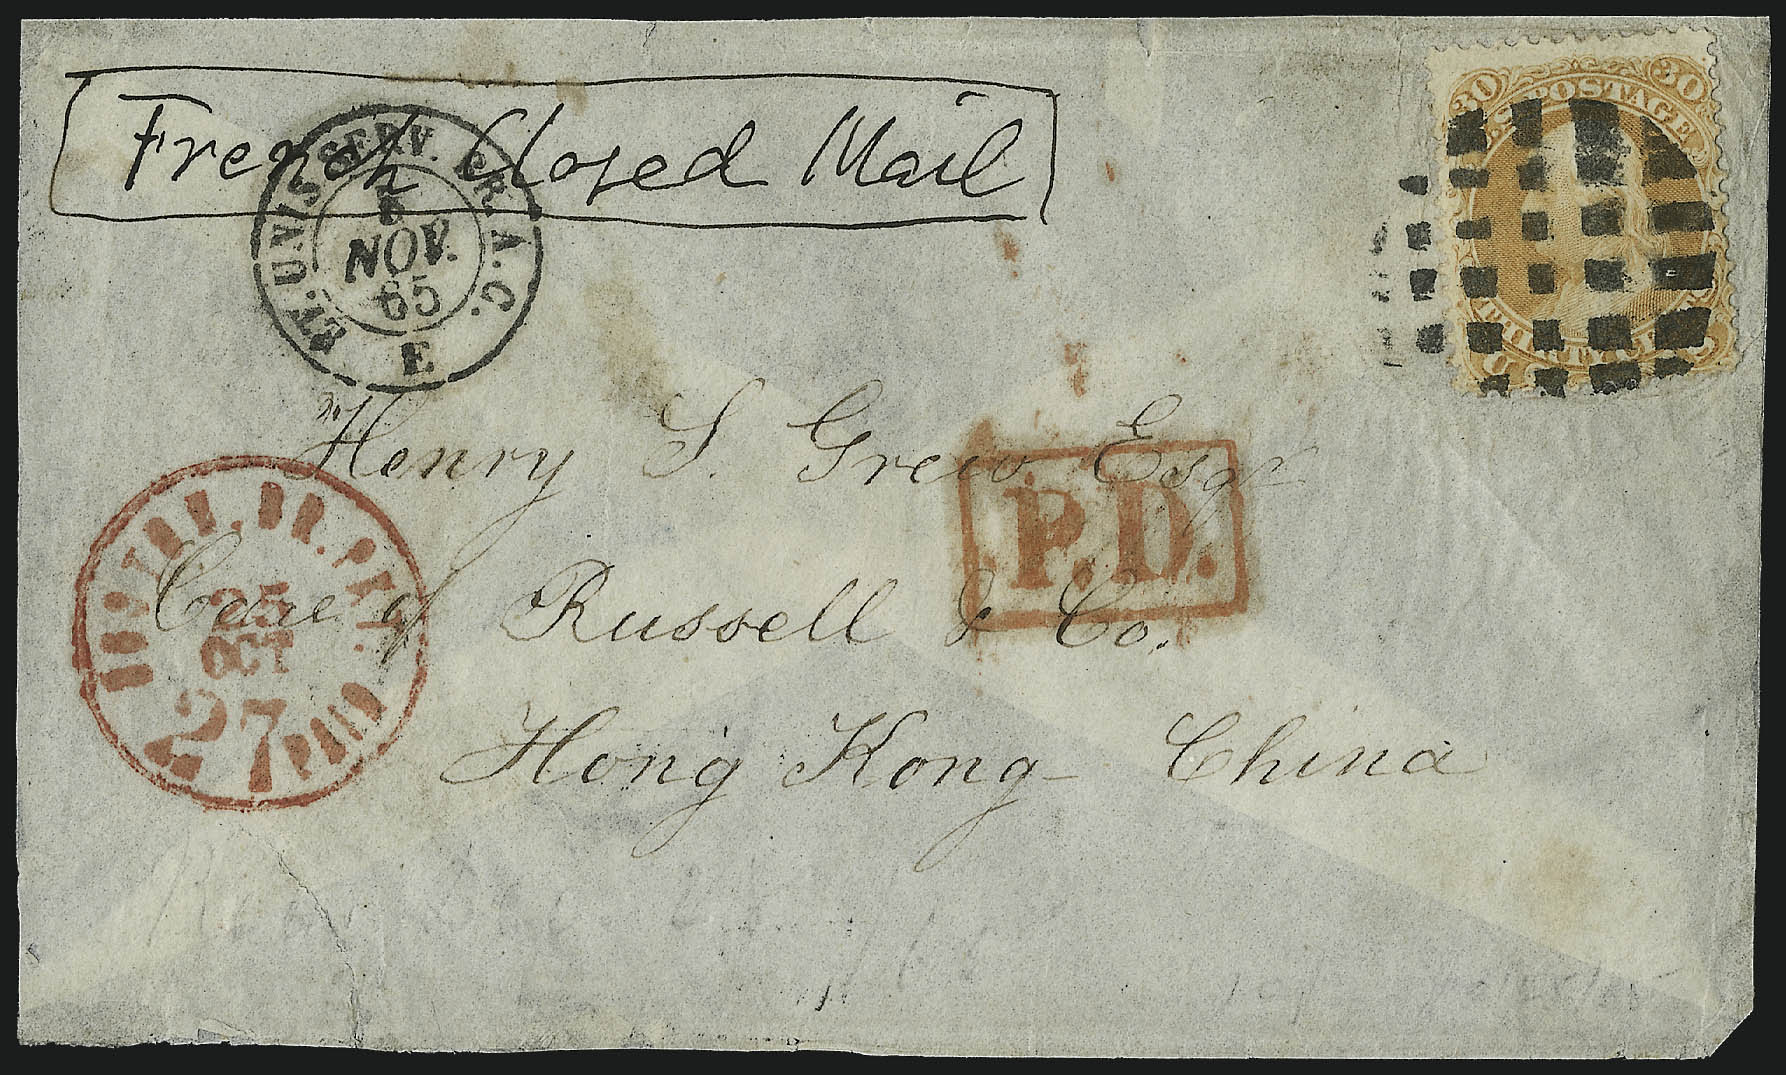 French Closed Mail
ET. UNIS SERV. BR. A. C.
5
NOV.
65
E
30 30
U.S. POSTAGE
THIRTY
Henry S. Grew Esqr
P.D.
BOSTON. BR. PKT.
25
OCT
27
PAID
Care of Russell & Co.
Hong Kong China